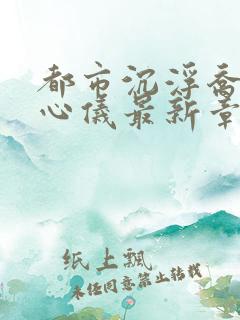 都市沉浮乔
心仪最新章
纸上飘
未经同意禁止转载